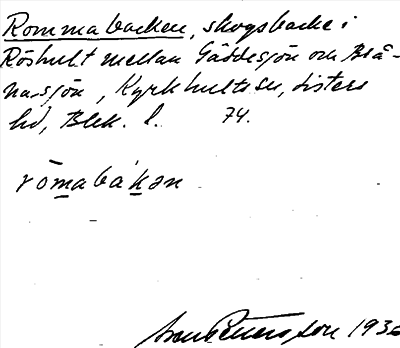 Rommabacken, skogsbacke i
Röshult mellan Gäddesjön och Blå-
nasjön, Kyrkhults sn, Listers
hd, Blek. l. 74.
rōmabákən
Petersson 1936